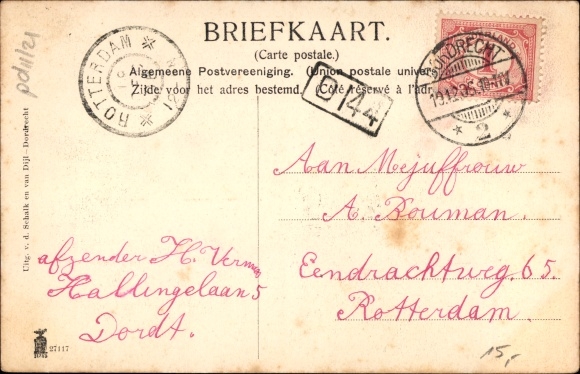 BRIEFKAART.
(Carte postale.)
Algemeene Postvereeniging. (Union postale univer
Zijde voor het adres bestemd. (Côté réservé à l'adr
ROTTERDAM
DORDRECHT
2
44
pd11/21
Uitg. v. d. Schalk en van Dijl - Dordrecht
Aan Mejuffrouw
A. Bouman.
Eendrachtweg. 65.
Rotterdam.
afzender H.
Hallingelaan 5
Dordt.
27117
15,-